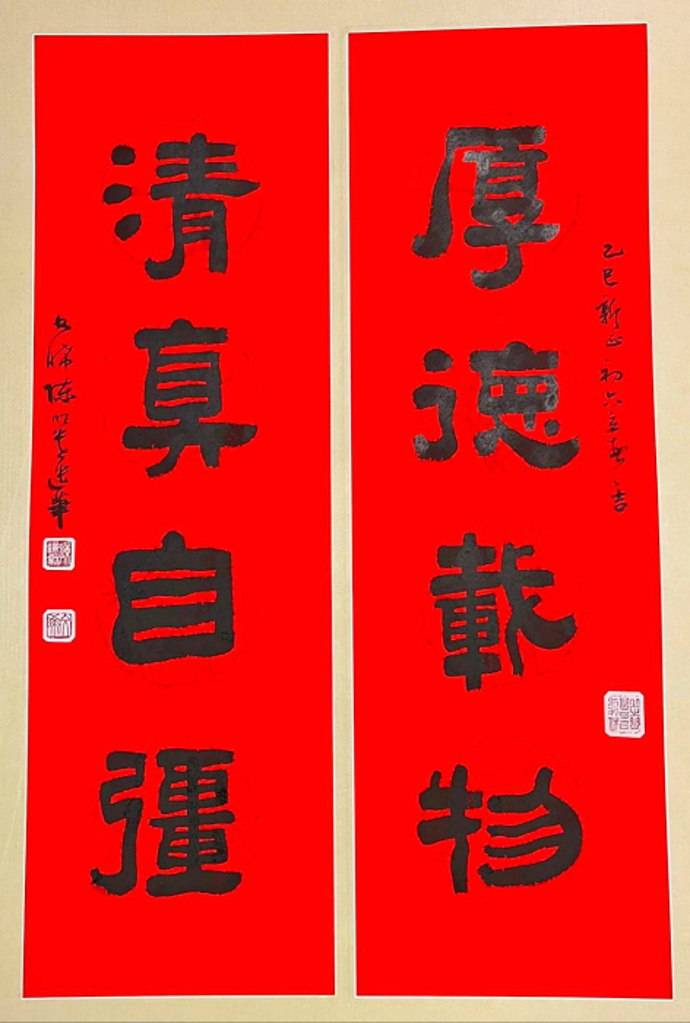 厚德載物
乙巳新正初六立春 吉
清真自彊